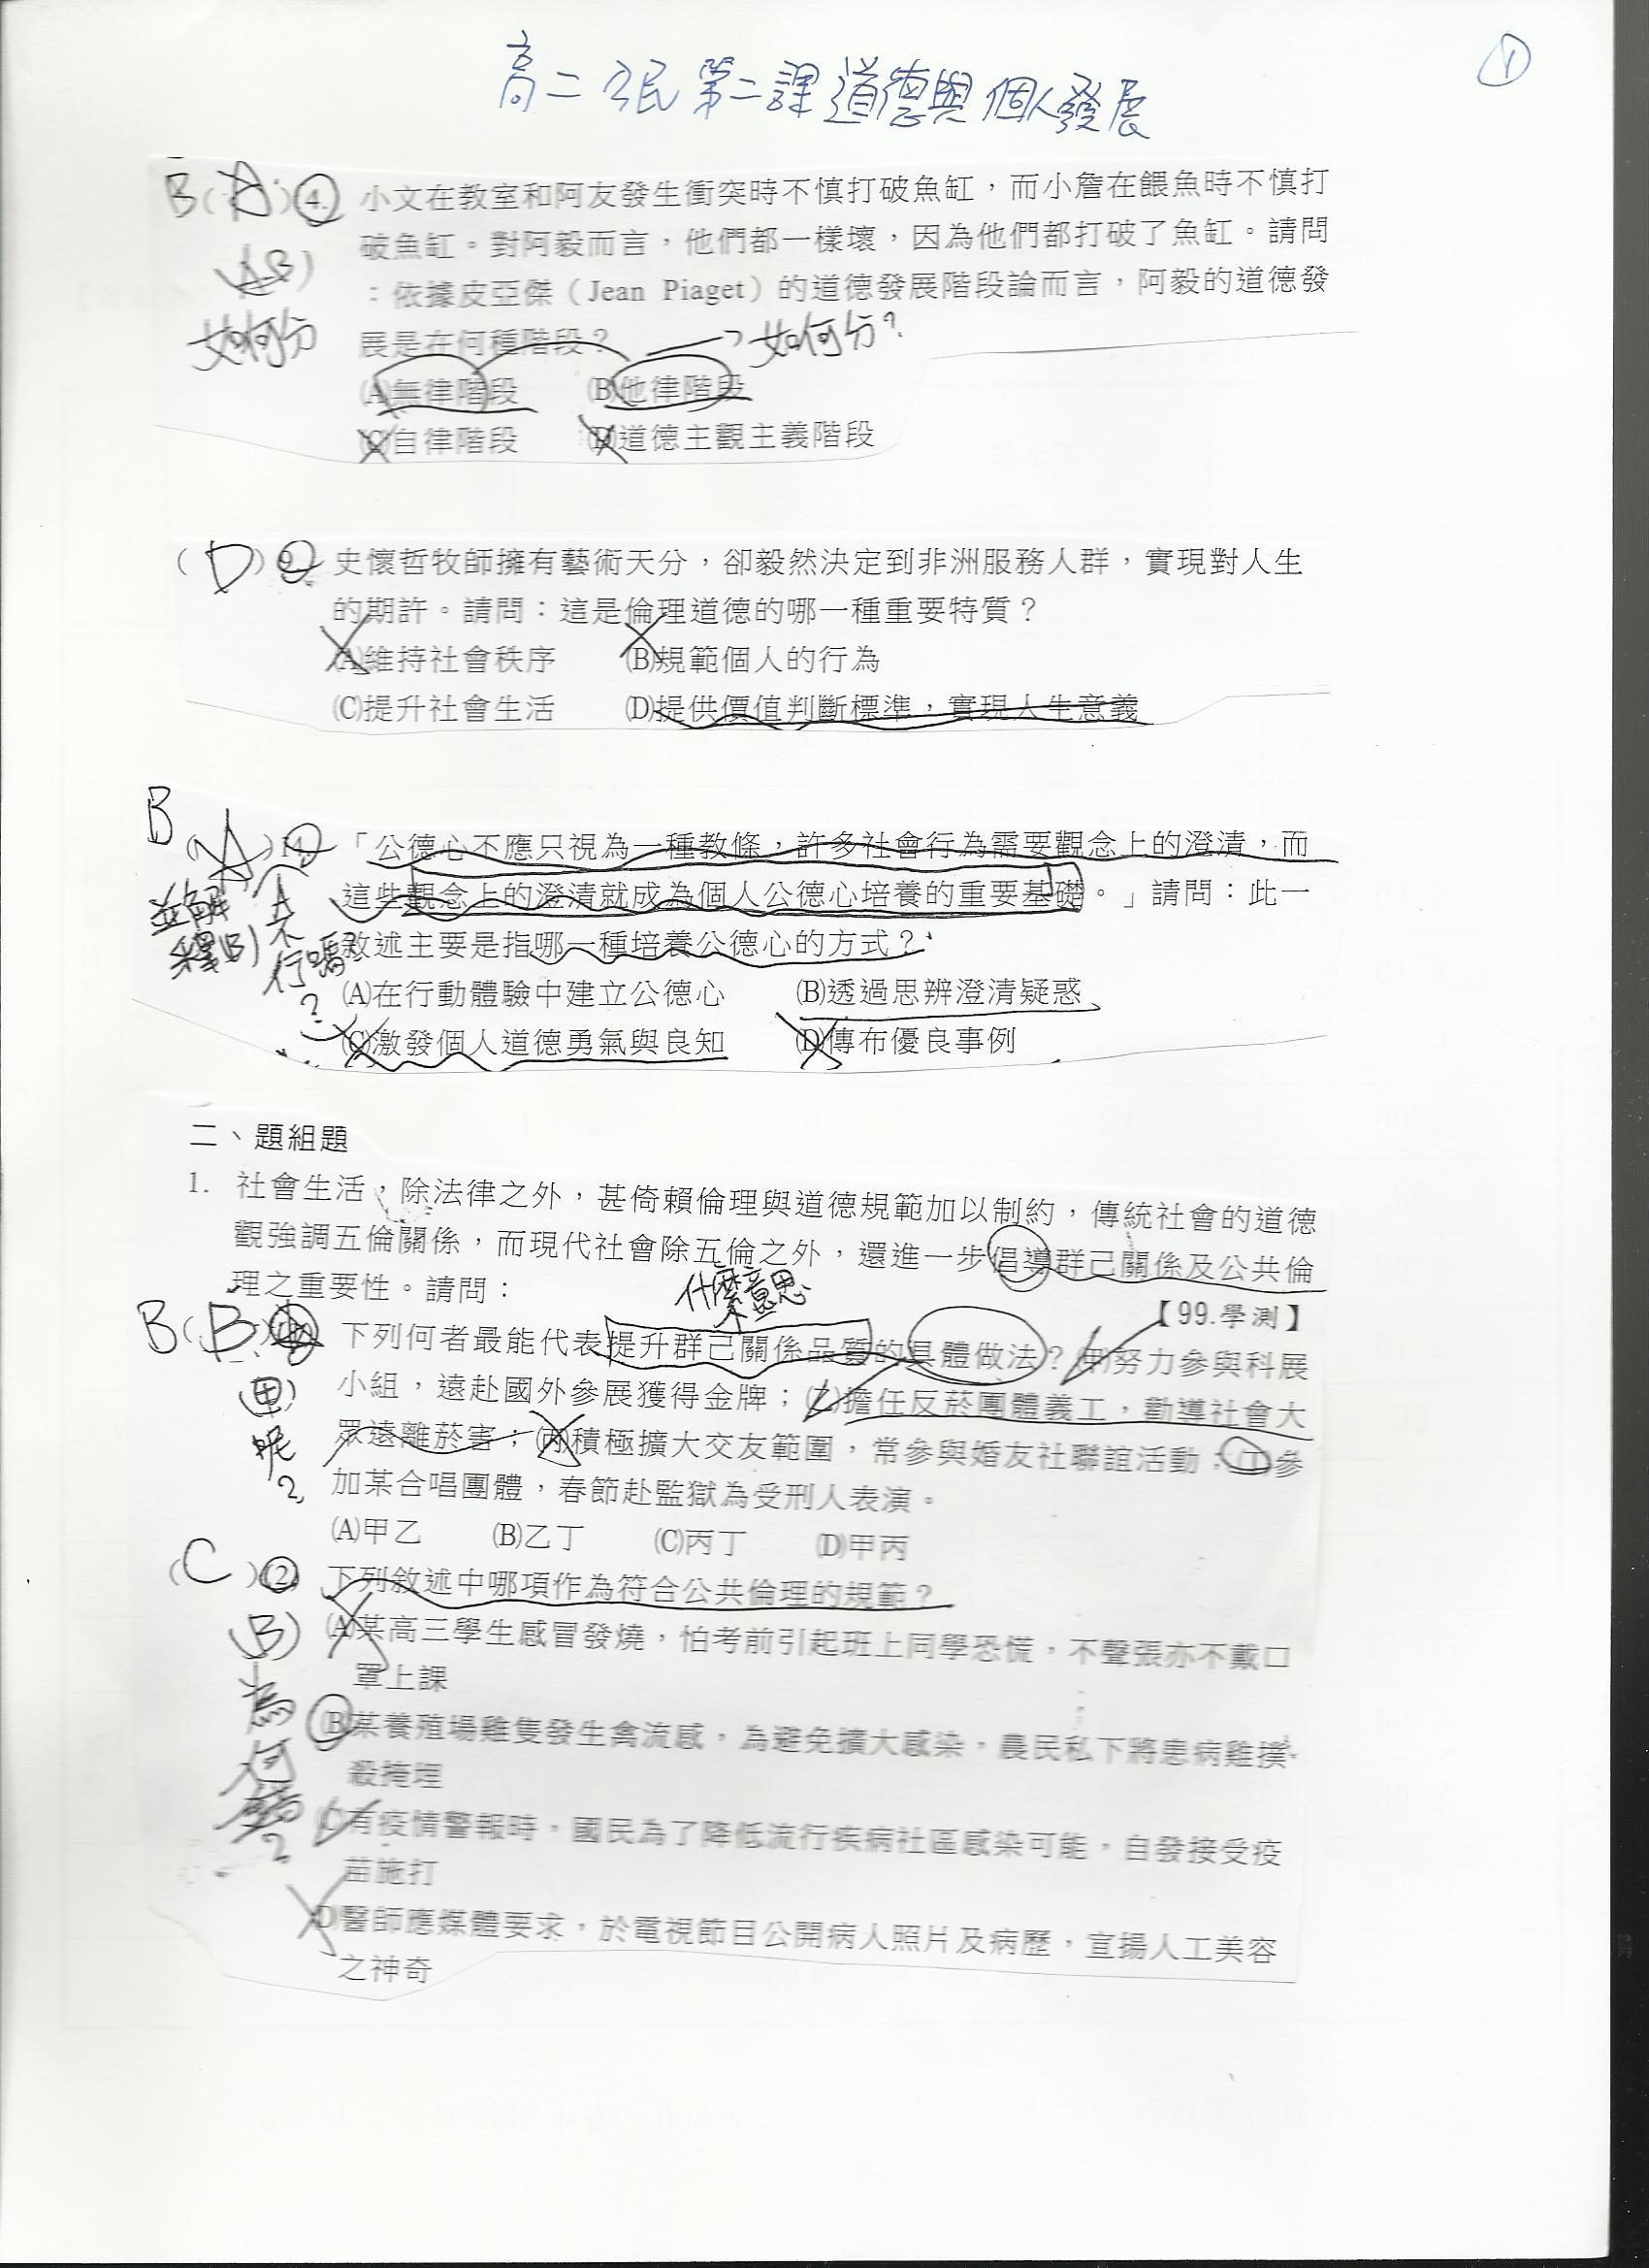 高二公民第二課道德與個人發展
1
B(A)4. 小文在教室和阿友發生衝突時不慎打破魚缸，而小詹在餵魚時不慎打
破魚缸。對阿毅而言，他們都一樣壞，因為他們都打破了魚缸。請問
：依據皮亞傑（Jean Piaget）的道德發展階段論而言，阿毅的道德發
展是在何種階段？
如何分?
(AB)
如何分
(A)無律階段 (B)他律階段
(C)自律階段 (D)道德主觀主義階段
(D)9. 史懷哲牧師擁有藝術天分，卻毅然決定到非洲服務人群，實現對人生
的期許。請問：這是倫理道德的哪一種重要特質？
(A)維持社會秩序 (B)規範個人的行為
(C)提升社會生活 (D)提供價值判斷標準，實現人生意義
B
(A)14. 「公德心不應只視為一種教條，許多社會行為需要觀念上的澄清，而
這些觀念上的澄清就成為個人公德心培養的重要基礎。」請問：此一
敘述主要是指哪一種培養公德心的方式？
並解釋(B)
(A不行嗎?)
(A)在行動體驗中建立公德心 (B)透過思辨澄清疑惑
(C)激發個人道德勇氣與良知 (D)傳布優良事例
二、題組題
1. 社會生活，除法律之外，甚倚賴倫理與道德規範加以制約，傳統社會的道德
觀強調五倫關係，而現代社會除五倫之外，還進一步倡導群己關係及公共倫
理之重要性。請問：
什麼意思
【99.學測】
B(B) 下列何者最能代表提升群己關係品質的具體做法？(甲)努力參與科展
小組，遠赴國外參展獲得金牌；(乙)擔任反菸團體義工，勸導社會大
眾遠離菸害；(丙)積極擴大交友範圍，常參與婚友社聯誼活動；(丁)參
加某合唱團體，春節赴監獄為受刑人表演。
(甲)呢?
(A)甲乙 (B)乙丁 (C)丙丁 (D)甲丙
(C)(2) 下列敘述中哪項作為符合公共倫理的規範？
(B)為何錯?
(A)某高三學生感冒發燒，怕考前引起班上同學恐慌，不聲張亦不戴口
罩上課
(B)某養殖場雞隻發生禽流感，為避免擴大感染，農民私下將患病雞撲
殺掩埋
(C)有疫情警報時，國民為了降低流行疾病社區感染可能，自發接受疫
苗施打
(D)醫師應媒體要求，於電視節目公開病人照片及病歷，宣揚人工美容
之神奇